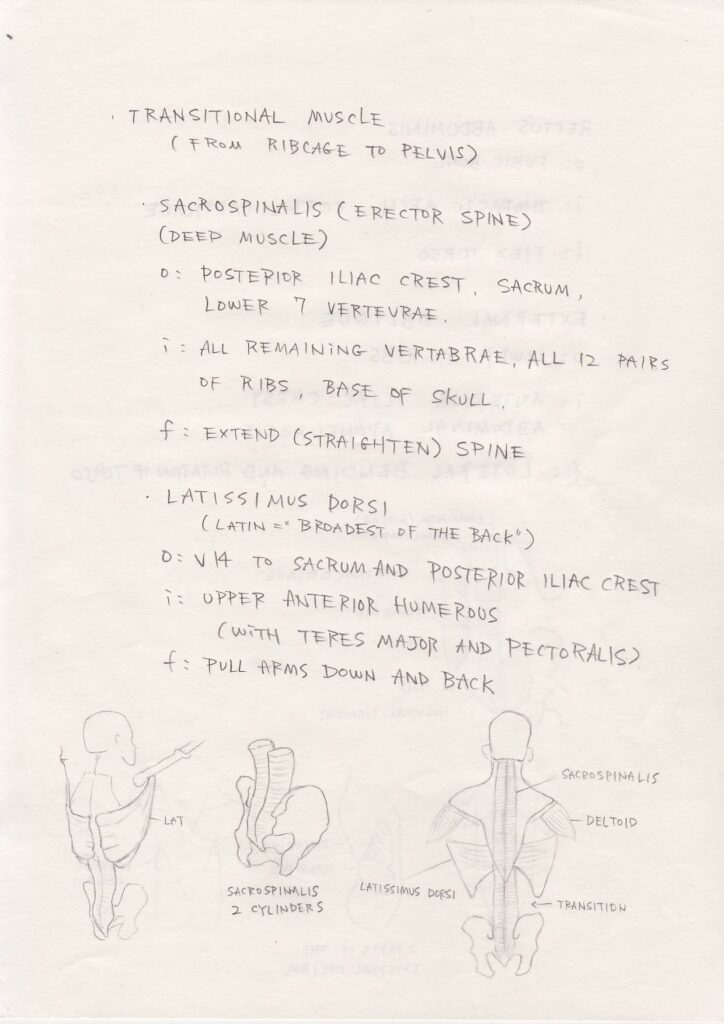 · TRANSITIONAL MUSCLE
(FROM RIBCAGE TO PELVIS)
· SACROSPINALIS (ERECTOR SPINE)
(DEEP MUSCLE)
O: POSTERIOR ILIAC CREST, SACRUM,
LOWER 7 VERTEVRAE.
i: ALL REMAINING VERTABRAE, ALL 12 PAIRS
OF RIBS, BASE OF SKULL.
f: EXTEND (STRAIGHTEN) SPINE
· LATISSIMUS DORSI
(LATIN = "BROADEST OF THE BACK")
O: V14 TO SACRUM AND POSTERIOR ILIAC CREST
i: UPPER ANTERIOR HUMEROUS
(WITH TERES MAJOR AND PECTORALIS)
f: PULL ARMS DOWN AND BACK
LAT
SACROSPINALIS
2 CYLINDERS
SACROSPINALIS
DELTOID
LATISSIMUS DORSI
TRANSITION